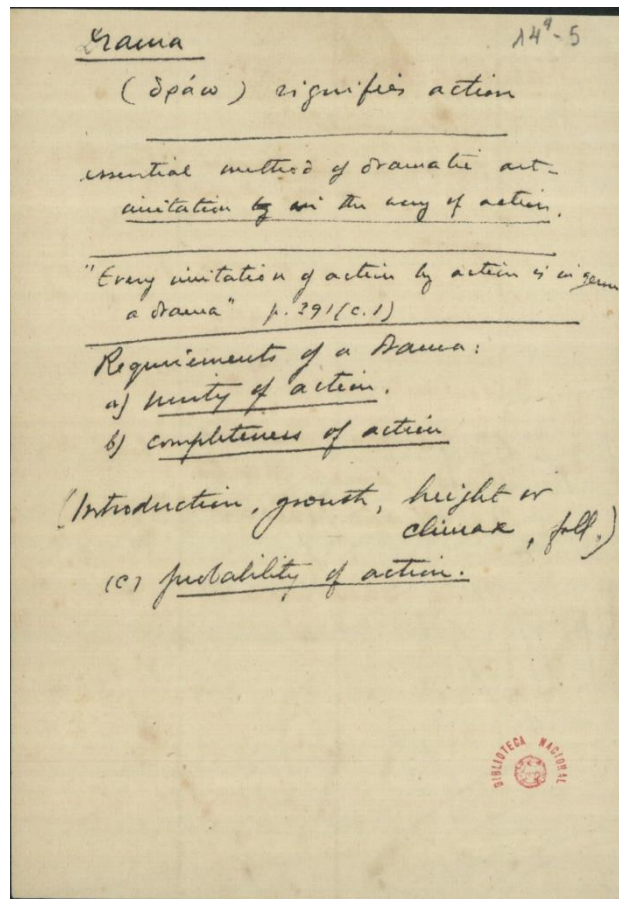 Drama
14⁹-5
(δράω) signifies action
essential method of dramatic art-
imitation by in the way of action.
"Every imitation of action by action is in germ
a drama" p. 391 (c. 1)
Requirements of a Drama:
a) unity of action.
b) completeness of action
(Introduction, growth, height or
climax, fall.)
(c) probability of action.
BIBLIOTECA NACIONAL